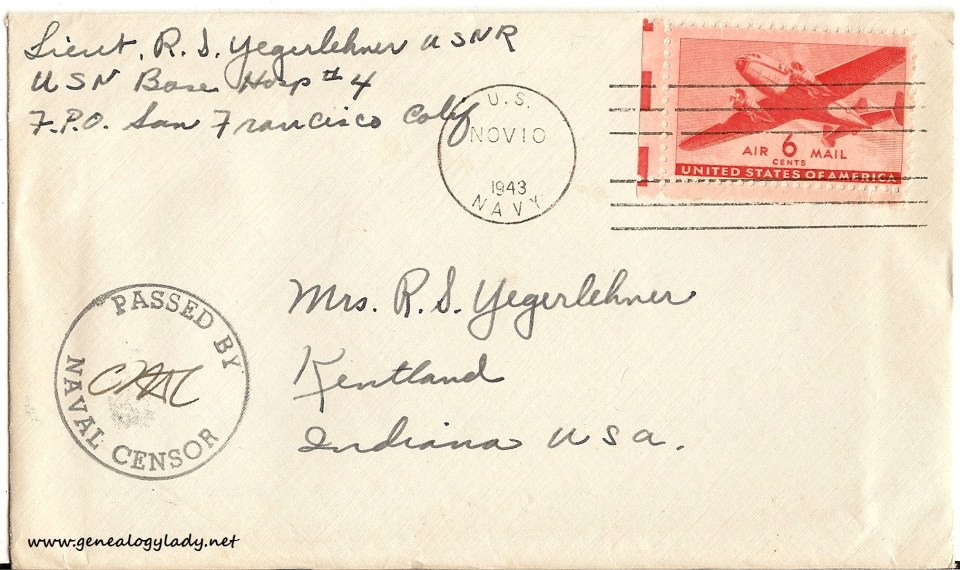 Lieut. R. S. Yegerlehner USNR
USN Base Hosp # 4
F.P.O. San Francisco Calif
U.S.
NOV 10
1943
NAVY
AIR 6 MAIL
CENTS
UNITED STATES OF AMERICA
Mrs. R. S. Yegerlehner
Kentland
Indiana U S a.
PASSED BY
NAVAL CENSOR
www.genealogylady.net